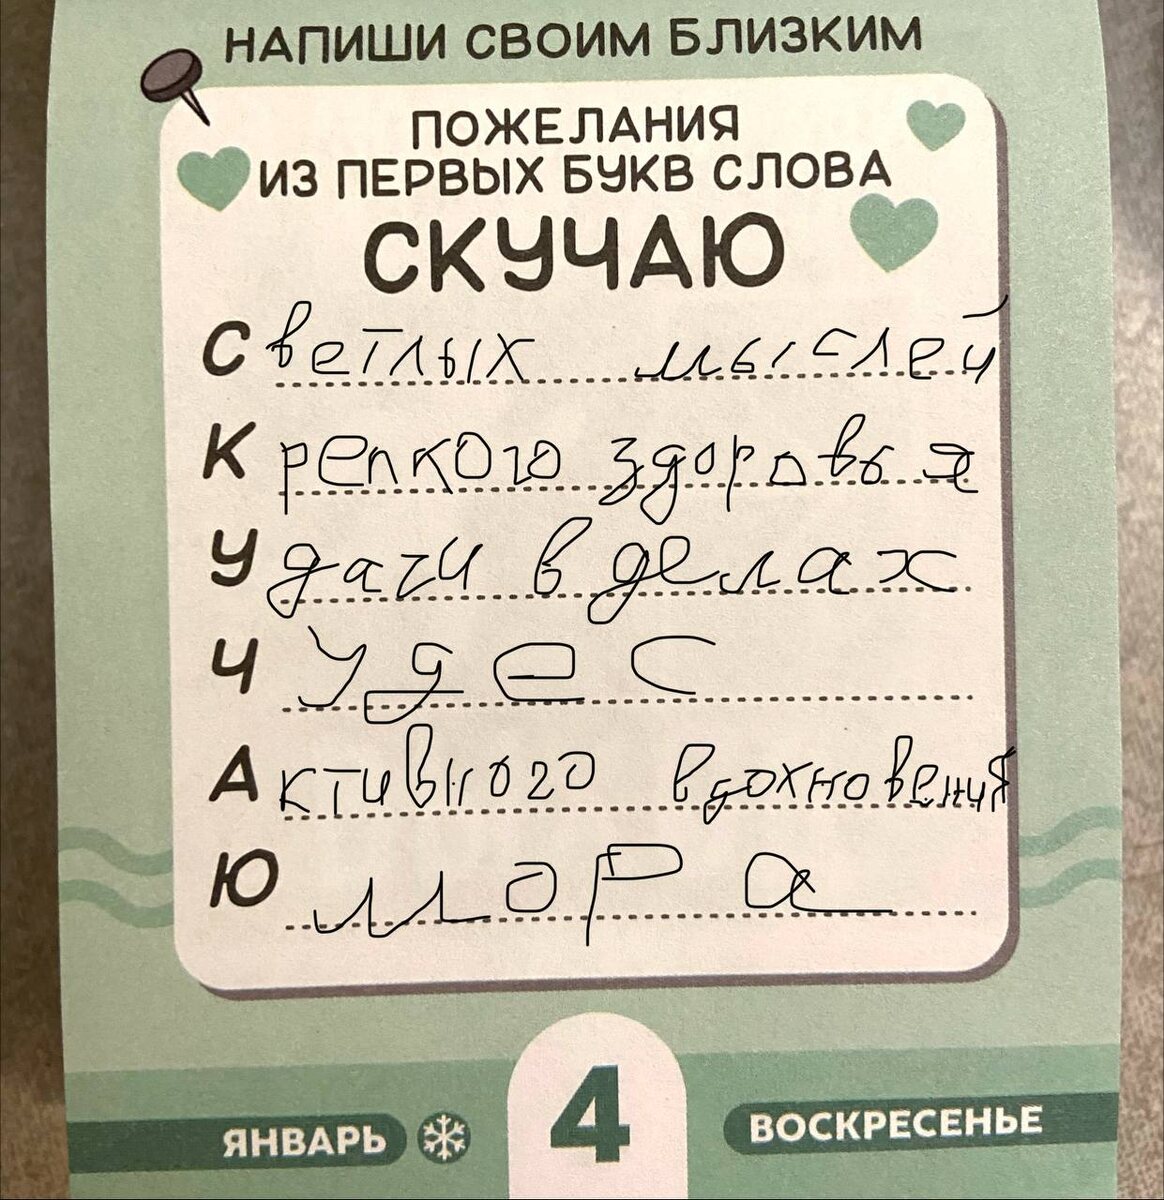 НАПИШИ СВОИМ БЛИЗКИМ
ПОЖЕЛАНИЯ
ИЗ ПЕРВЫХ БУКВ СЛОВА
СКУЧАЮ
Светлых мыслей
Крепкого здоровья
Удачи в делах
Чудес
Активного вдохновения
Юмора
4
ЯНВАРЬ ВОСКРЕСЕНЬЕ